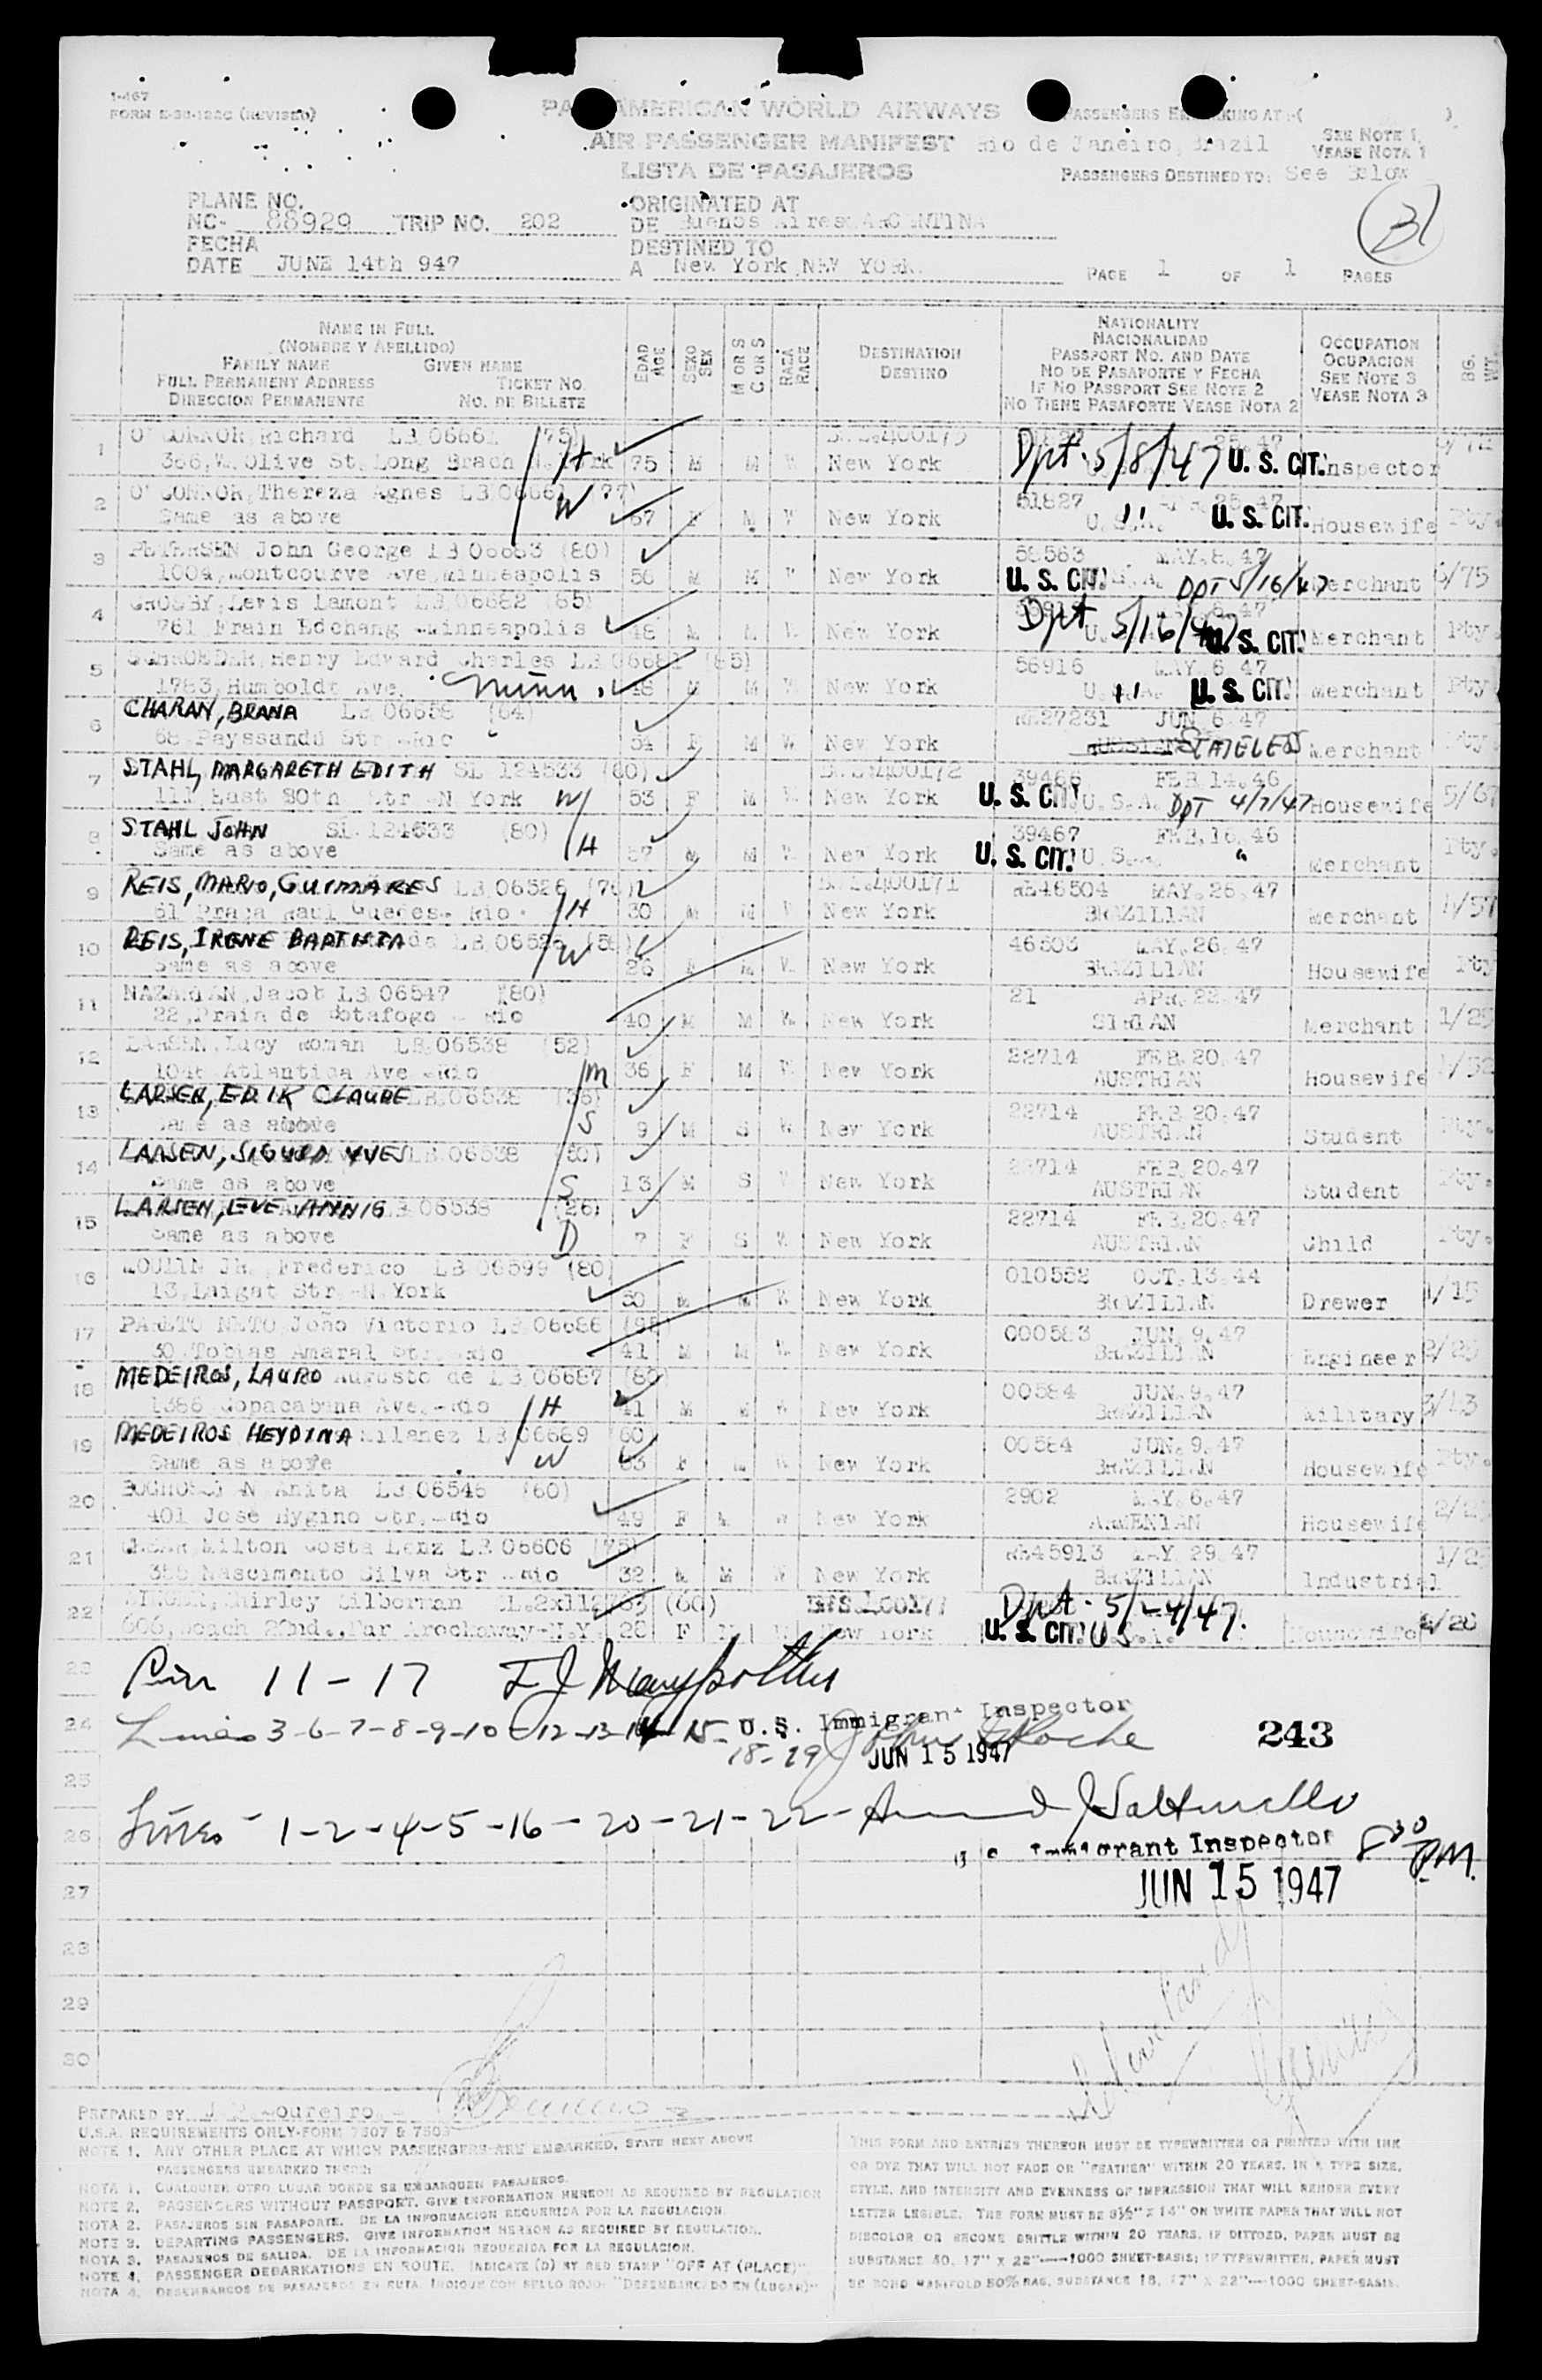 I-467
FORM
PAN AMERICAN WORLD AIRWAYS
PASSENGERS EMBARKING AT: ( )
AIR PASSENGER MANIFEST Rio de Janeiro, Brazil
SEE NOTE 1
VEASE NOTA 1
LISTA DE PASAJEROS
PASSENGERS DESTINED TO: See Below
31
PLANE NO.
NC- 88929 TRIP NO. 202
ORIGINATED AT
DE Buenos Aires ARGENTINA
FECHA
DATE JUNE 14th 947
DESTINED TO
A New York NEW YORK.
PAGE 1 OF 1 PAGES
NAME IN FULL
(NOMBRE Y APELLIDO)
FAMILY NAME GIVEN NAME
FULL PERMANENT ADDRESS TICKET NO.
DIRECCION PERMANENTE NO. DE BILLETE
EDAD AGE
SEXO SEX
M OR S
C OR S
RAZA RACE
DESTINATION
DESTINO
NATIONALITY
NACIONALIDAD
PASSPORT NO. AND DATE
NO DE PASAPORTE Y FECHA
IF NO PASSPORT SEE NOTE 2
NO TIENE PASAPORTE VEASE NOTA 2
OCCUPATION
OCUPACION
SEE NOTE 3
VEASE NOTA 3
BG. WT.
1 O'CONNOR, Richard (75)
366, W. Olive St. Long H 75 M M W New York Dpt. 5/8/47 U. S. CIT. Inspector
2 O'CONNOR, Thereza Agnes LB 06661 (77)
Same as above W 67 F M W New York 51827 25.47 " U. S. CIT. Housewife Pty.
3 PETERSEN John George LB 06683 (80)
1004, Montcourve Ave Minneapolis 56 M M W New York 58563 MAY.8.47 U. S. CIT. DPT 5/16/47 Merchant 6/75
4 CROSBY, Lewis Lamont LB 06682 (85)
761 Minneapolis 48 M M W New York Dpt 5/16/47 U. S. CIT. Merchant Pty.
5 SCHROEDER, Henry Edward Charles LB 06681 (85)
1783, Humboldt Ave. Minn. 48 M M W New York 56916 MAY.6.47 " U. S. CIT. Merchant Pty.
6 CHARAN, BRANA LB 06658 (64)
68 Payssandu Str. -Rio 54 F M W New York RE27231 JUN.6.47 STATELESS Merchant Pty.
7 STAHL, MARGARETH EDITH SL 124633 (60)
111 East 80th Str -N York W 53 F M W New York 39466 FEB 14.46 U. S. CIT. U.S.A. DPT 4/7/47 Housewife 5/67
8 STAHL JOHN SL 124633 (80)
Same as above H 57 M M W New York 39467 FEB.16.46 U. S. CIT. U.S.A. " Merchant Pty.
9 REIS, MARIO, GUIMARAES LB 06526 (76)
61 Praça Raul Guedes- Rio. H 30 M M W New York RE46504 MAY.26.47 BRAZILIAN Merchant
10 REIS, IRENE BAPTISTA LB 06526
Same as above W 26 F M W New York 46503 MAY.26.47 BRAZILIAN Housewife Pty
11 NAZARIAN, Jacob LB 06547 (80)
22, Praia de Botafogo - Rio 40 M M W New York 21 APR.22.47 SIRIAN Merchant
12 LARSEN, Lucy Roman LB.06538 (52)
Atlantica Ave -Rio M 36 F M W New York 22714 FEB.20.47 AUSTRIAN Housewife
13 LARSEN, ERIK CLAUDE LB.06538 (36)
Same as above S 9 M S W New York 22714 FEB 20.47 AUSTRIAN Student Pty.
14 LARSEN, SIGURD YVES LB 06538
Same as above S 13 M S W New York 22714 FEB.20.47 AUSTRIAN Student Pty.
15 LARSEN, EVE ANNIG LB 06538 (26)
Same as above D 7 F S W New York 22714 FEB.20.47 AUSTRIAN Child Pty.
16 Frederico LB 06599 (80)
13, Str. -N. York 50 M M W New York 010552 OCT.13.44 BRAZILIAN Drewer 1/15
17 PARETO NETO João Victorio LB 06686
30, Tobias Amaral Str. -Rio 41 M M W New York 000583 JUN.9.47 BRAZILIAN Engineer
18 MEDEIROS, LAURO Augusto de LB 06687 (80)
1386 Copacabana Ave. -Rio H 41 M M W New York 00584 JUN.9.47 BRAZILIAN Military 3/43
19 MEDEIROS HEYDINA Milanez LB 06689 (60)
Same as above W F M W New York 00584 JUN.9.47 BRAZILIAN Housewife Pty.
20 Anita LB 06546 (60)
401 José Hygino Str. -Rio 49 F M W New York 2902 MAY.6.47 ARMENIAN Housewife
21 Milton Costa Lenz LB 06606 (75)
Nascimento Silva Str -Rio 32 M M W New York RE45913 MAY 29.47 BRAZILIAN Industrial
22 Shirley Silberman (60)
606, Beach 22nd., Far Arockaway-N.Y. 28 F M W New York U. S. CIT. Housewife
23
11 - 17
24 Lines 3-6-7-8-9-10-12-13-14-15-
18-19
U.S. Immigrant Inspector
JUN 15 1947
243
25
26 Lines - 1-2-4-5-16-20-21-22-
Immigrant Inspector 8 30 P.M.
JUN 15 1947
27
28
29
30
PREPARED BY J Loureiro
U.S.A. REQUIREMENTS ONLY-FORM 7507 & 7509
NOTE 1. ANY OTHER PLACE AT WHICH PASSENGERS ARE EMBARKED, STATE NEXT ABOVE
PASSENGERS EMBARKED THERE
NOTA 1. CUALQUIER OTRO LUGAR DONDE SE EMBARQUEN PASAJEROS.
NOTE 2. PASSENGERS WITHOUT PASSPORT. GIVE INFORMATION HEREON AS REQUIRED BY REGULATION
NOTA 2. PASAJEROS SIN PASAPORTE. DE LA INFORMACION REQUERIDA POR LA REGULACION.
NOTE 3. DEPARTING PASSENGERS. GIVE INFORMATION HEREON AS REQUIRED BY REGULATION.
NOTA 3. PASAJEROS DE SALIDA. DE LA INFORMACION REQUERIDA POR LA REGULACION.
NOTE 4. PASSENGER DEBARKATIONS EN ROUTE. INDICATE (D) BY RED STAMP "OFF AT (PLACE)"
NOTA 4. DESEMBARCOS DE PASAJEROS EN RUTA. INDIQUE CON SELLO ROJO: "DESEMBARCADO EN (LUGAR)"
THIS FORM AND ENTRIES THEREON MUST BE TYPEWRITTEN OR PRINTED WITH INK
OR DYE THAT WILL NOT FADE OR "FEATHER" WITHIN 20 YEARS. IN A TYPE SIZE,
STYLE, AND INTENSITY AND EVENNESS OF IMPRESSION THAT WILL RENDER EVERY
LETTER LEGIBLE. THE FORM MUST BE 8½" X 14" ON WHITE PAPER THAT WILL NOT
DISCOLOR OR BECOME BRITTLE WITHIN 20 YEARS. IF DITTOED, PAPER MUST BE
SUBSTANCE 40, 17" X 22"—1000 SHEET-BASIS; IF TYPEWRITTEN, PAPER MUST
BE BOND MANIFOLD 50% RAG, SUBSTANCE 16, 17" X 22"—1000 SHEET-BASIS.